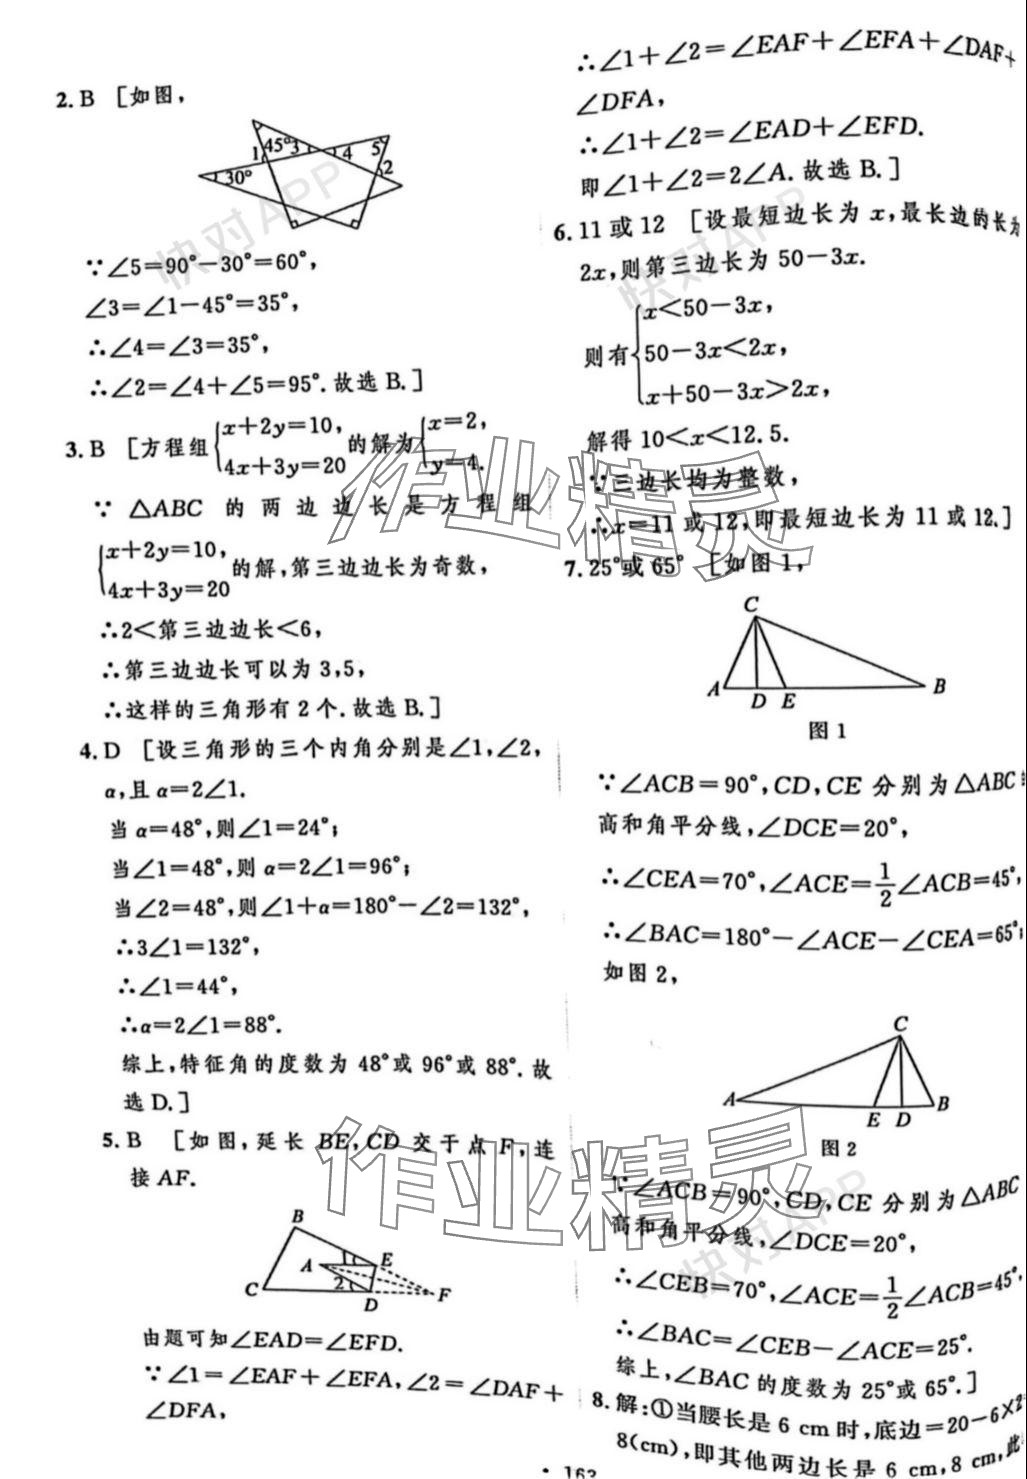 2. B [如图，
45° 3 4 5 1 2 30°
∵∠5=90°-30°=60°，
∠3=∠1-45°=35°，
∴∠4=∠3=35°，
∴∠2=∠4+∠5=95°.故选 B.]
3. B [方程组{x+2y=10，4x+3y=20 的解为{x=2，y=4.
∵ △ABC 的两边边长是方程组
{x+2y=10，4x+3y=20 的解，第三边边长为奇数，
∴2<第三边边长<6，
∴第三边边长可以为 3，5，
∴这样的三角形有 2 个.故选 B.]
4. D [设三角形的三个内角分别是∠1，∠2，
α，且 α=2∠1.
当 α=48°，则∠1=24°；
当∠1=48°，则 α=2∠1=96°；
当∠2=48°，则∠1+α=180°-∠2=132°，
∴3∠1=132°，
∴∠1=44°，
∴α=2∠1=88°.
综上，特征角的度数为 48°或 96°或 88°.故
选 D.]
5. B [如图，延长 BE，CD 交于点 F，连
接 AF.
B A 1 E C 2 D F
由题可知∠EAD=∠EFD.
∵∠1=∠EAF+∠EFA，∠2=∠DAF+
∠DFA，
∴∠1+∠2=∠EAF+∠EFA+∠DAF+
∠DFA，
∴∠1+∠2=∠EAD+∠EFD.
即∠1+∠2=2∠A.故选 B.]
6. 11 或 12 [设最短边长为 x，最长边的长为
2x，则第三边长为 50-3x.
则有{x<50-3x，
50-3x<2x，
x+50-3x>2x，
解得 10<x<12.5.
∵三边长均为整数，
∴x=11 或 12，即最短边长为 11 或 12.]
7. 25°或 65° [如图 1，
C
A D E B
图 1
∵∠ACB=90°，CD，CE 分别为△ABC 的
高和角平分线，∠DCE=20°，
∴∠CEA=70°，∠ACE=1/2∠ACB=45°，
∴∠BAC=180°-∠ACE-∠CEA=65°；
如图 2，
C
A E D B
图 2
∵∠ACB=90°，CD，CE 分别为△ABC
高和角平分线，∠DCE=20°，
∴∠CEB=70°，∠ACE=1/2∠ACB=45°，
∴∠BAC=∠CEB-∠ACE=25°.
综上，∠BAC 的度数为 25°或 65°.]
8. 解：①当腰长是 6 cm 时，底边=20-6×2=
8(cm)，即其他两边长是 6 cm，8 cm，此
快对APP
快对APP
作业精灵
作业精灵
快对APP